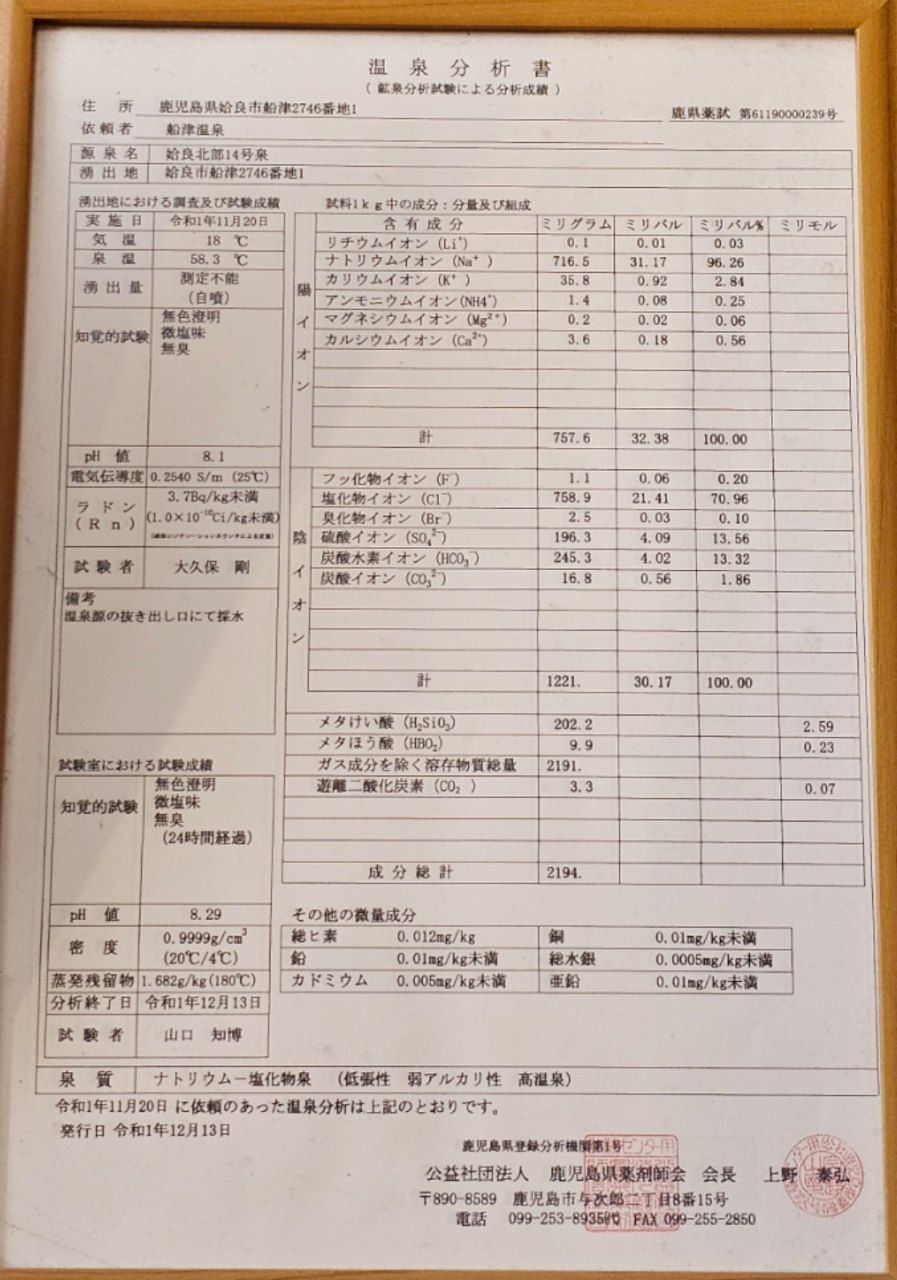 温泉分析書
(鉱泉分析試験による分析成績)
住所 鹿児島県姶良市船津2746番地1
鹿県薬試 第61190000239号
依頼者 船津温泉
源泉名 姶良北部14号泉
湧出地 姶良市船津2746番地1
湧出地における調査及び試験成績
実施日 令和1年11月20日
気温 18 ℃
泉温 58.3 ℃
湧出量 測定不能
(自噴)
知覚的試験 無色澄明
微塩味
無臭
pH 値 8.1
電気伝導度 0.2540 S/m (25℃)
ラドン
(Rn) 3.7Bq/kg未満
(1.0×10⁻¹⁰Ci/kg未満)
(液体シンチレーションカウンタによる定量)
試験者 大久保 剛
備考
温泉源の抜き出し口にて採水
試験室における試験成績
知覚的試験 無色澄明
微塩味
無臭
(24時間経過)
pH 値 8.29
密度 0.9999g/cm³
(20℃/4℃)
蒸発残留物 1.682g/kg(180℃)
分析終了日 令和1年12月13日
試験者 山口 知博
試料1kg中の成分:分量及び組成
含有成分 ミリグラム ミリバル ミリバル% ミリモル
陽イオン
リチウムイオン (Li⁺) 0.1 0.01 0.03
ナトリウムイオン (Na⁺) 716.5 31.17 96.26
カリウムイオン (K⁺) 35.8 0.92 2.84
アンモニウムイオン(NH4⁺) 1.4 0.08 0.25
マグネシウムイオン (Mg²⁺) 0.2 0.02 0.06
カルシウムイオン (Ca²⁺) 3.6 0.18 0.56
計 757.6 32.38 100.00
陰イオン
フッ化物イオン (F⁻) 1.1 0.06 0.20
塩化物イオン (Cl⁻) 758.9 21.41 70.96
臭化物イオン (Br⁻) 2.5 0.03 0.10
硫酸イオン (SO₄²⁻) 196.3 4.09 13.56
炭酸水素イオン (HCO₃⁻) 245.3 4.02 13.32
炭酸イオン (CO₃²⁻) 16.8 0.56 1.86
計 1221. 30.17 100.00
メタけい酸 (H₂SiO₃) 202.2 2.59
メタほう酸 (HBO₂) 9.9 0.23
ガス成分を除く溶存物質総量 2191.
遊離二酸化炭素 (CO₂) 3.3 0.07
成分総計 2194.
その他の微量成分
総ヒ素 0.012mg/kg 銅 0.01mg/kg未満
鉛 0.01mg/kg未満 総水銀 0.0005mg/kg未満
カドミウム 0.005mg/kg未満 亜鉛 0.01mg/kg未満
泉質 ナトリウム－塩化物泉 (低張性 弱アルカリ性 高温泉)
令和1年11月20日 に依頼のあった温泉分析は上記のとおりです。
発行日 令和1年12月13日
鹿児島県登録分析機関第1号
公益社団法人 鹿児島県薬剤師会 会長 上野 泰弘
〒890-8589 鹿児島市与次郎二丁目8番15号
電話 099-253-8935代 FAX 099-255-2850